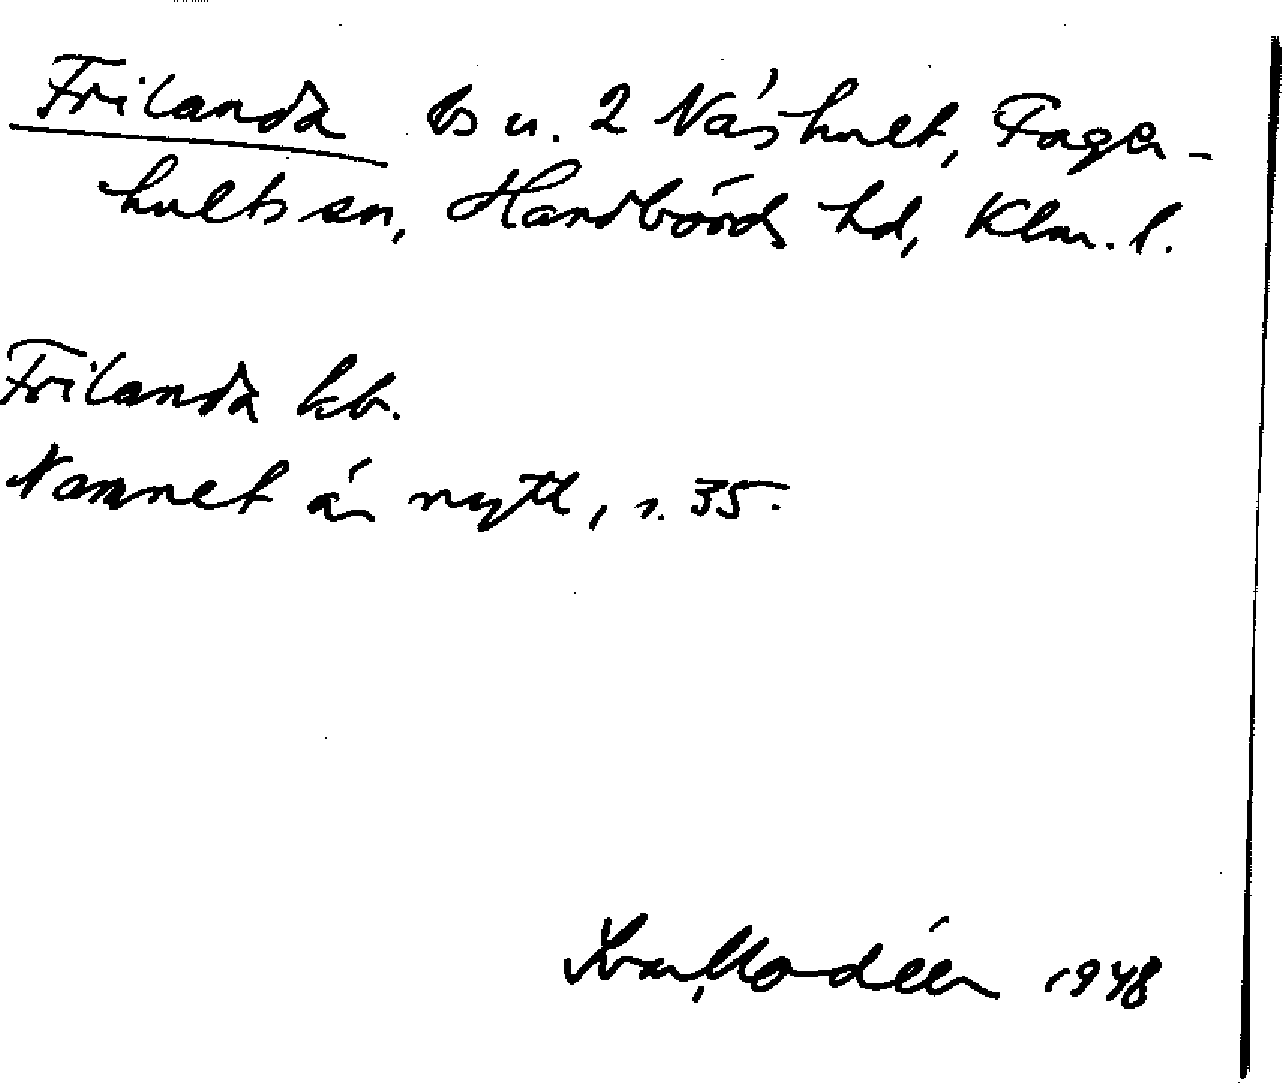 Frilanda ls u. 2 Näshult, Fager-
hults sn, Handbörds hd, Klm. l.
Frilanda kb.
Namnet är nytt, s. 35.
Ivar Modéer 1948